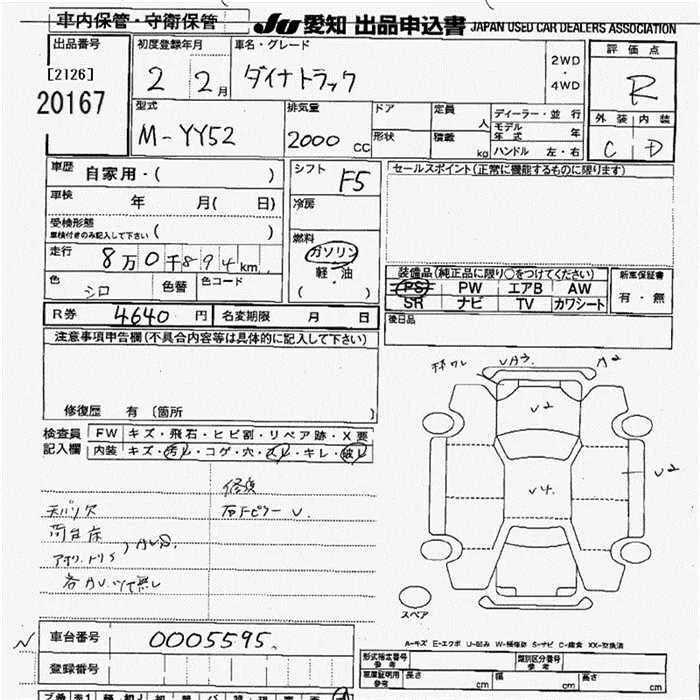 車内保管・守衛保管
JU 愛知 出品申込書 JAPAN USED CAR DEALERS ASSOCIATION
出品番号
[2126]
20167
初度登録年月
2 2月
車名・グレード
ダイナトラック
2WD
・
4WD
評価点
R
外装 内装
C D
型式
M-YY52
排気量
2000 cc
ドア
形状
定員 人
積載 kg
ディーラー・並行
モデル年式 年
ハンドル 左・右
車歴 自家用・( )
車検 年 月( 日)
受検形態
車検付きのみ記入して下さい ( )
走行 8万0千894km
色 シロ 色替 色コード
シフト F5
冷房
燃料
ガソリン
軽・油
( )
セールスポイント(正常に機能するものに限ります)
装備品(純正品に限り○をつけてください)
PS PW エアB AW
SR ナビ TV カワシート
新車保証書
有・無
後日品
R券 4640 円 名変期限 月 日
注意事項申告欄(不具合内容等は具体的に記入して下さい)
修復歴 有 〔箇所 〕
検査員記入欄
FW キズ・飛石・ヒビ割・リペア跡・X要
内装 キズ・汚レ・コゲ・穴・スレ・キレ・破レ
荷台床
V
UA3 A2
U2
U4
U2
スペア
A-キズ E-エクボ U-凹み W-補修跡 S-サビ C-腐食 XX-交換済
車台番号 0005595
登録番号
型式指定番号
参考
類別区分番号
参考
車庫証明用
参考
長さ cm 幅 cm 高さ cm